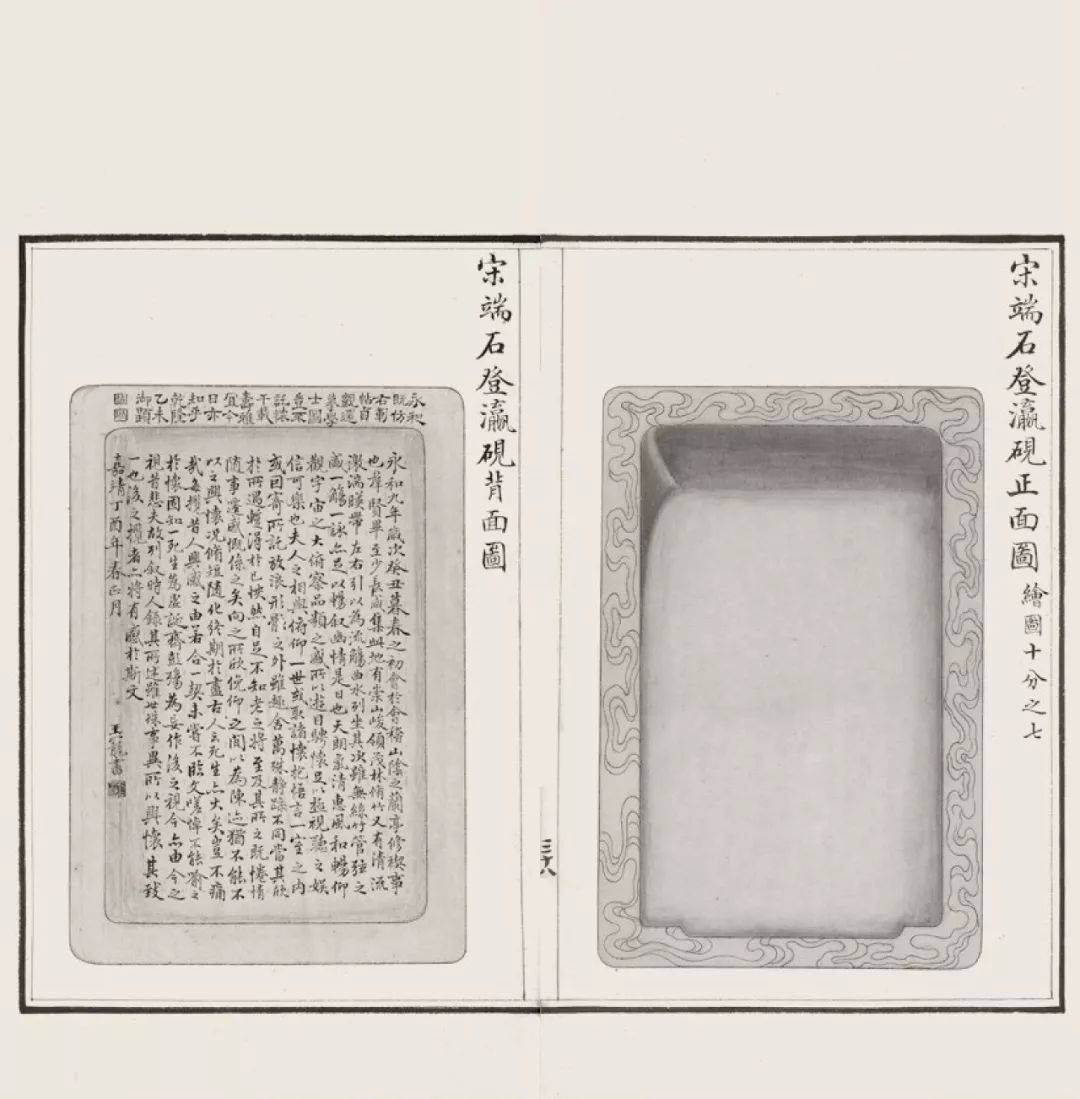 宋端石登瀛硯正面圖
繪圖十分之七
宋端石登瀛硯背面圖
永和
既仿
右軍
帖自
觀還
摹學
士圖
託懷
千載
壽雅
宜今
日亦
知乎
乾隆
乙未
御題
永和九年歲次癸丑暮春之初會於會稽山陰之蘭亭修禊事
也羣賢畢至少長咸集此地有崇山峻領茂林脩竹又有清流
激湍暎帶左右引以為流觴曲水列坐其次雖無絲竹管弦之
盛一觴一詠亦足以暢叙幽情是日也天朗氣清惠風和暢仰
觀宇宙之大俯察品類之盛所以遊目騁懷足以極視聽之娛
信可樂也夫人之相與俯仰一世或取諸懷抱悟言一室之內
或因寄所託放浪形骸之外雖趣舍萬殊靜躁不同當其欣
於所遇暫得於己怏然自足不知老之將至及其所之既惓情
隨事遷感慨係之矣向之所欣俛仰之間以為陳迹猶不能不
以之興懷況脩短隨化終期於盡古人云死生亦大矣豈不痛
哉每攬昔人興感之由若合一契未嘗不臨文嗟悼不能喻之
於懷固知一死生為虛誕齊彭殤為妄作後之視今亦由今之
視昔悲夫故列叙時人錄其所述雖世殊事異所以興懷其致
一也後之攬者亦將有感於斯文
嘉靖丁酉年春正月
王寵書